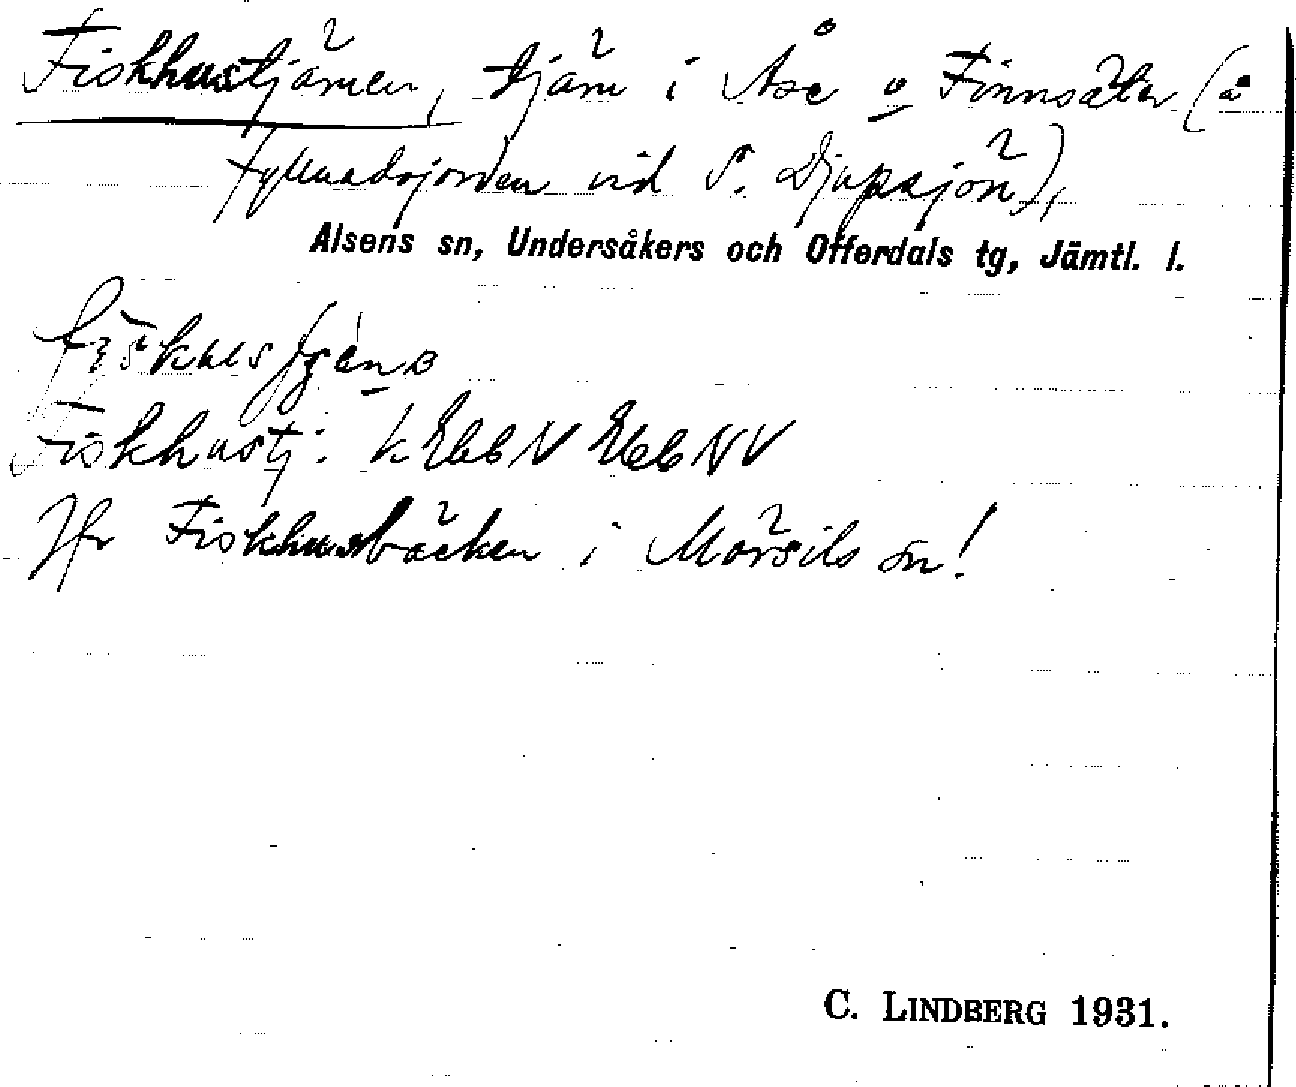 Fiskhustjärnen, tjärn i Åse o Finnsäter (å
fyllnadsjorden vid S. Djupsjön),
Alsens sn, Undersåkers och Offerdals tg, Jämtl. l.
Fiskhustj: k Ebb N Ebb NV
Jfr Fiskhusbäcken i Mörsils sn!
C. LINDBERG 1931.